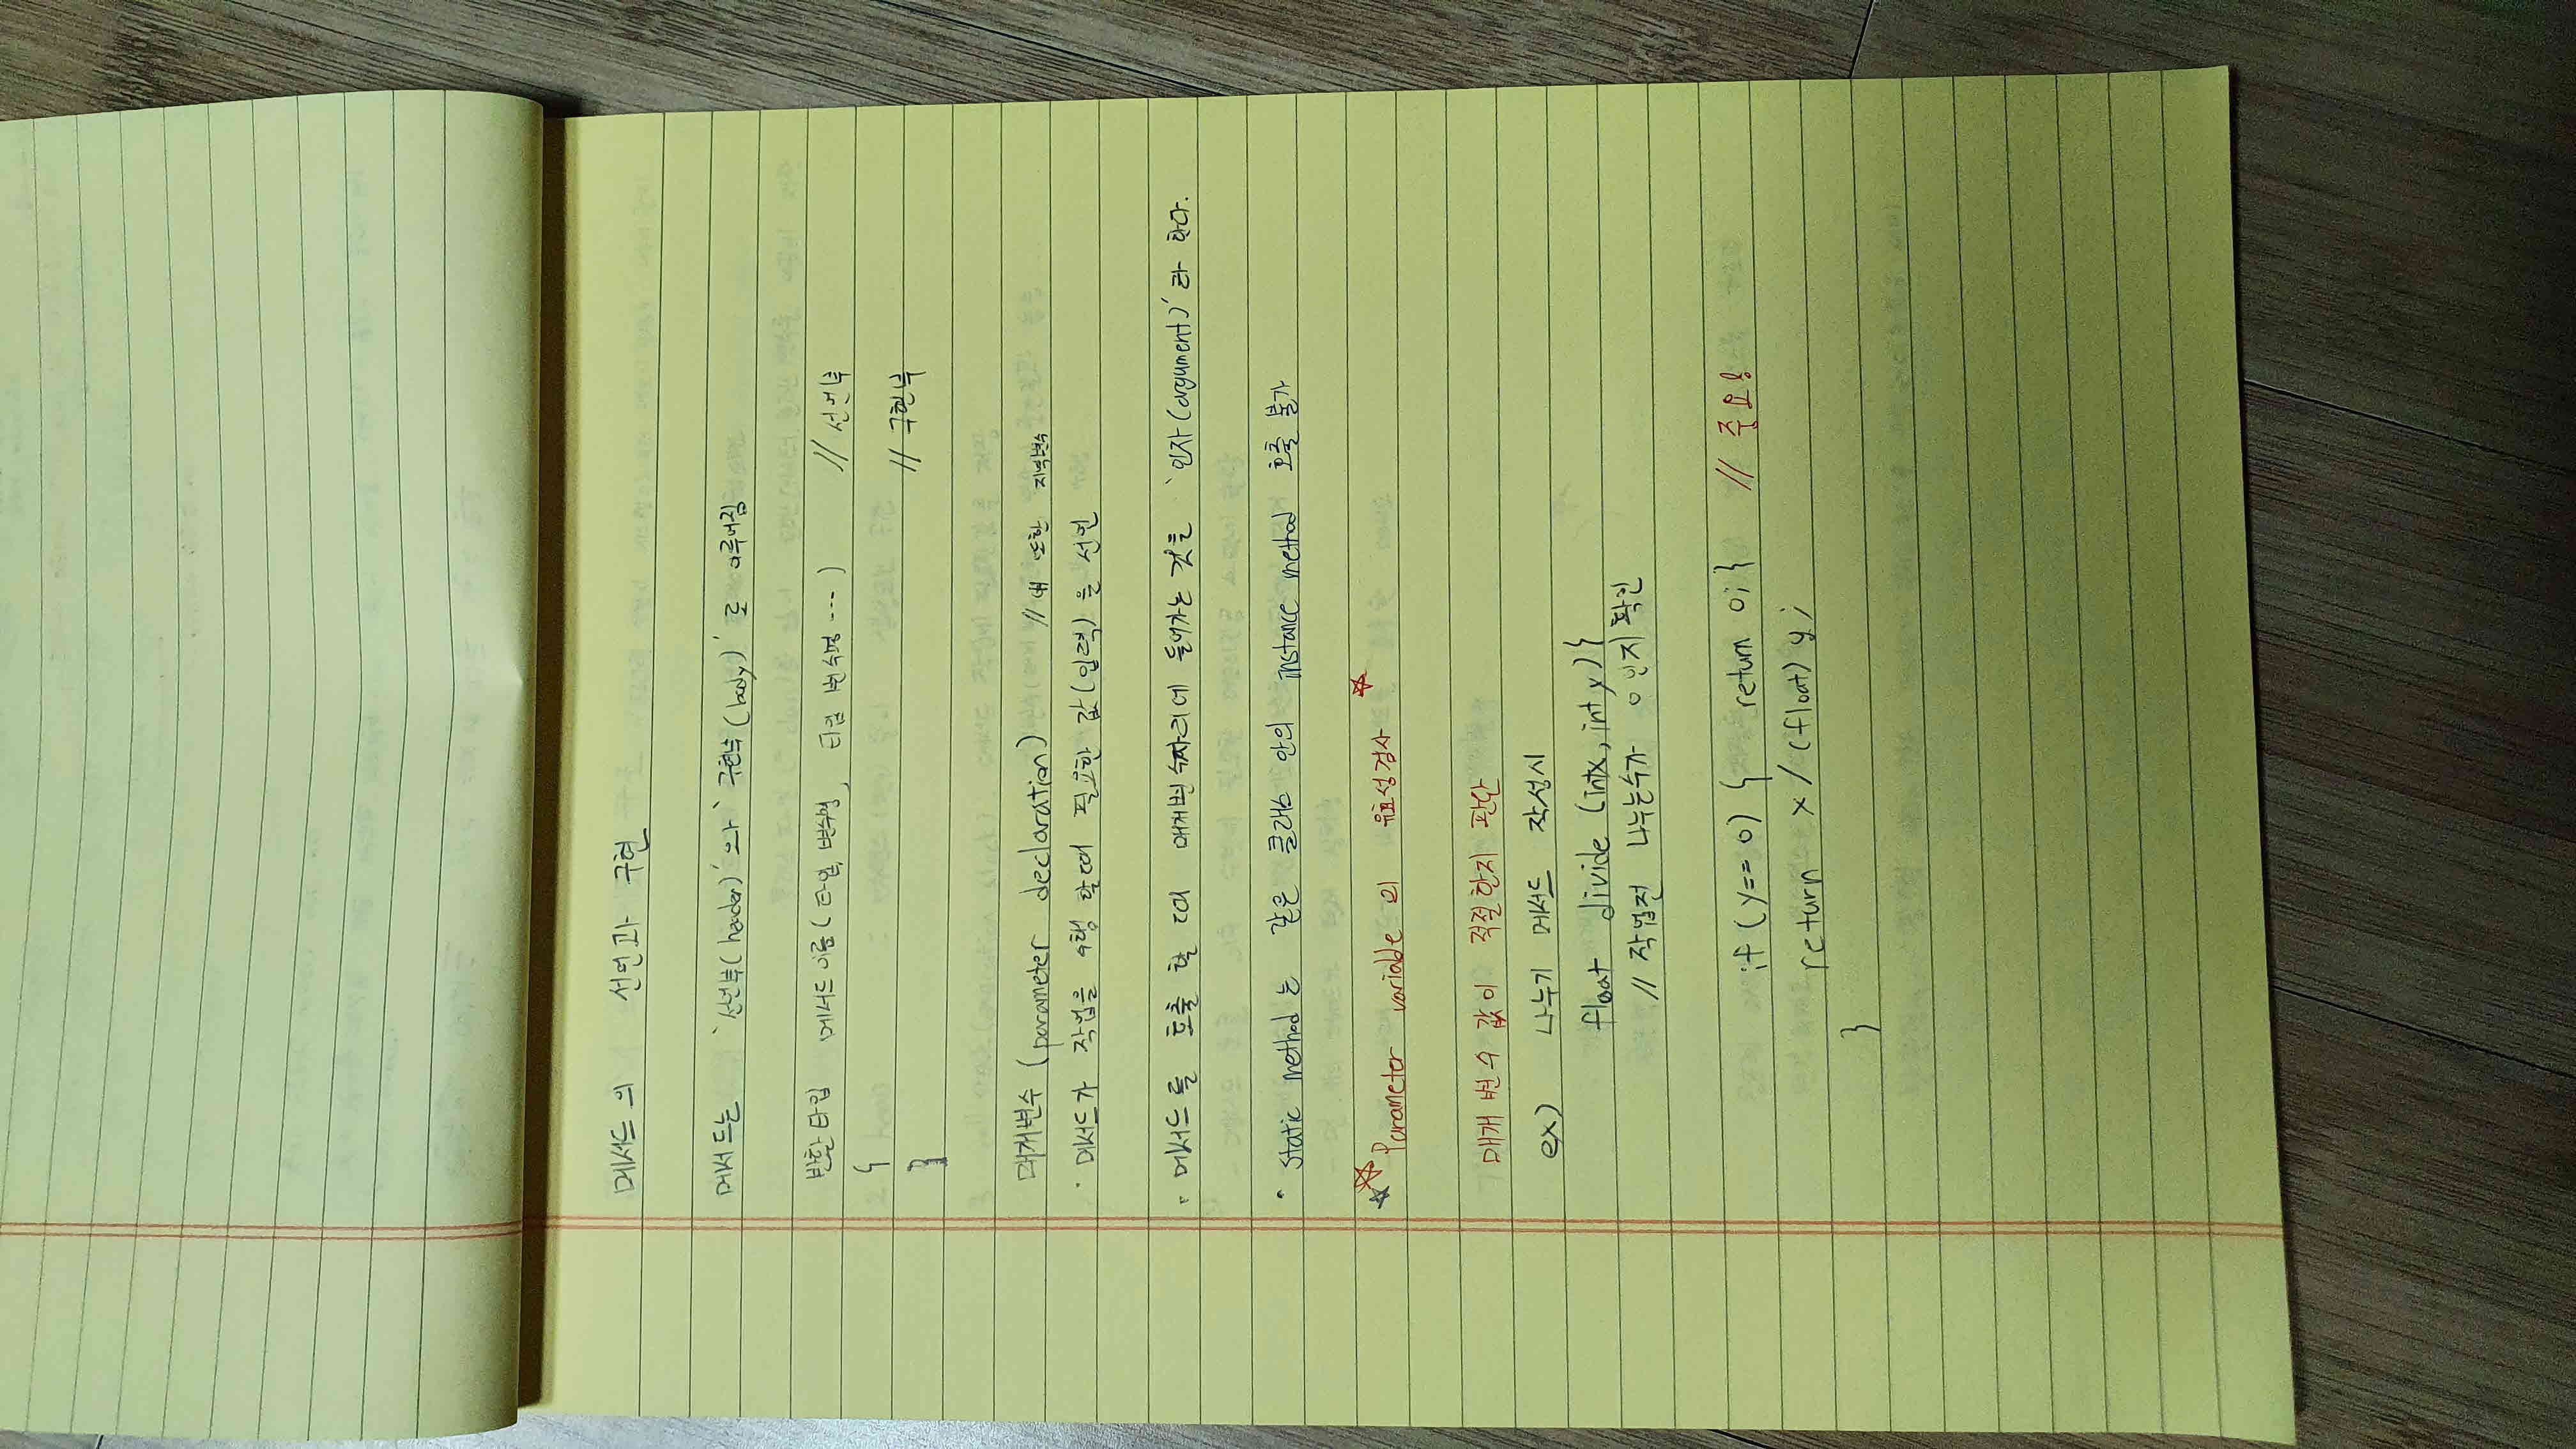 메서드의 선언과 구현
메서드는 '선언부(header)'와 '구현부(body)'로 이루어짐
반환타입 메서드이름(타입 변수명, 타입 변수명 ---) // 선언부
{
// 구현부
}
매개변수 (parameter declaration) // 얘 또한 지역변수
· 메서드가 작업을 수행 할때 필요한 값(입력)을 선언
· 메서드를 호출 할 때 매개변수자리에 들어가는 것을 '인자(argument)'라 한다.
· static method는 같은 클래스 안의 instance method 호출 불가
☆☆ Parameter variable의 유효성검사 ☆
매개변수 값이 적절한지 판단
ex) 나누기 메서드 작성시
float divide (int x, int y) {
// 작업전 나누는수가 0인지 확인
if (y == 0) { return 0; } // 중요!
return x / (float) y;
}